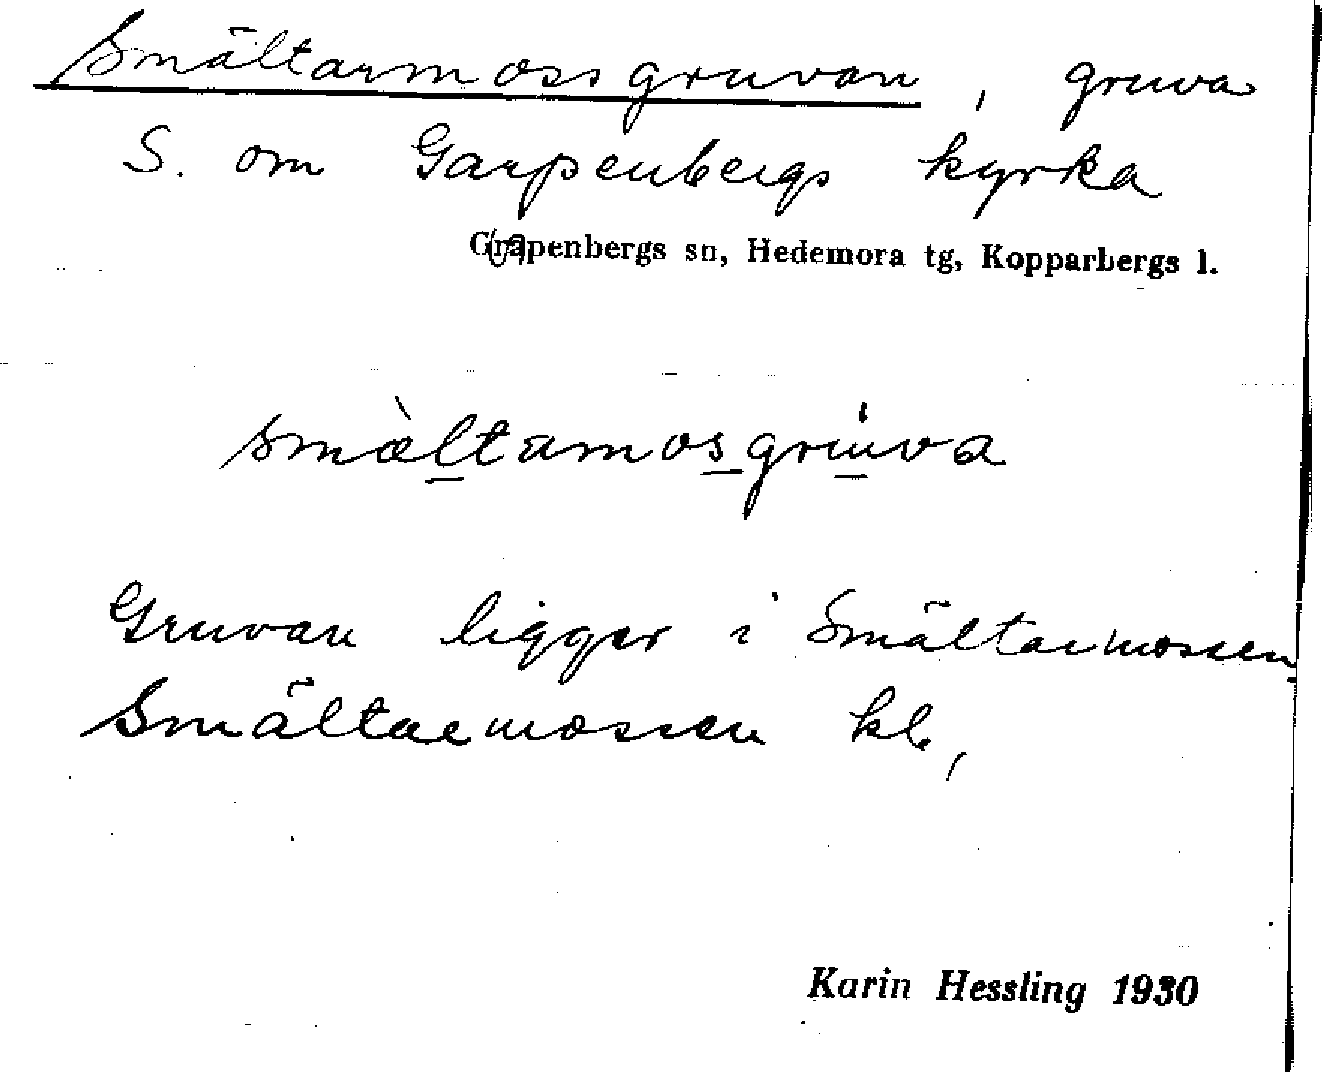 Smältarmossgruvan, gruva
S. om Garpenbergs kyrka
Grapenbergs sn, Hedemora tg, Kopparbergs l.
smæ̀ltamosgruva
Gruvan ligger i Smältarmossen
Smältarmossen kl,
Karin Hessling 1930